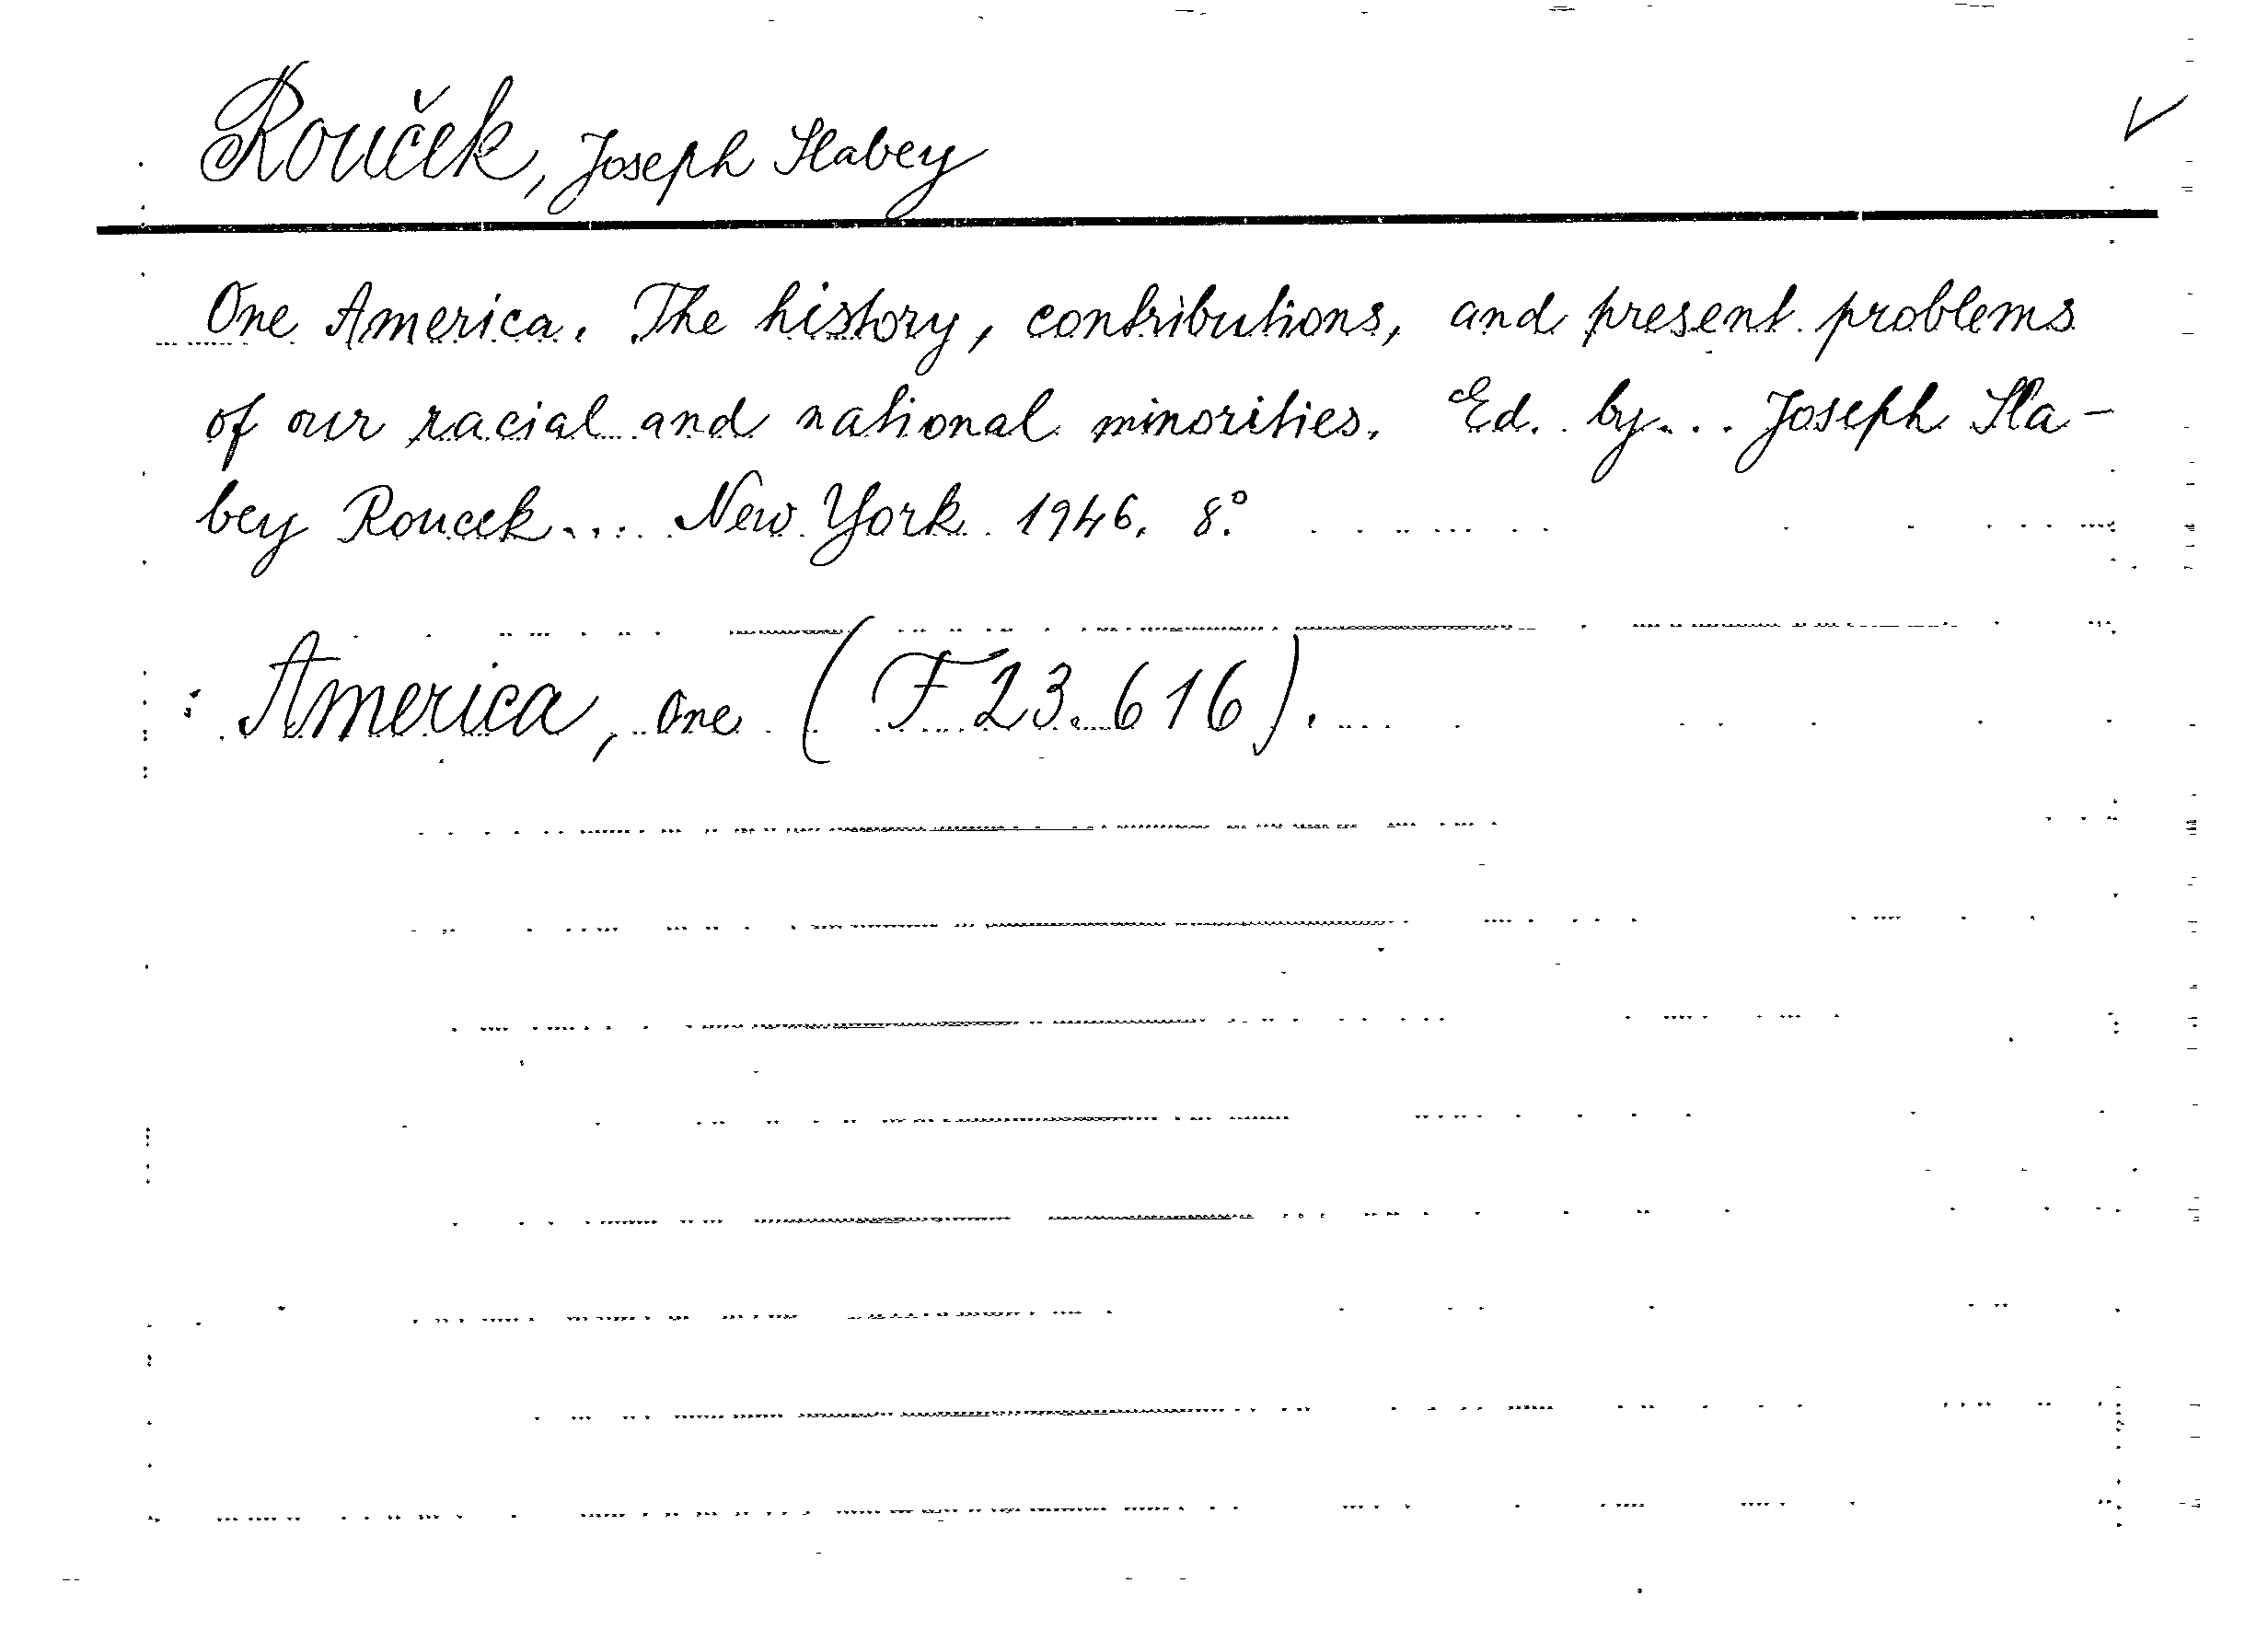 Rouček, Joseph Slabey
One America. The history, contributions, and present problems
of our racial and national minorities. Ed. by... Joseph Sla-
bey Roucek... New York 1946. 8°.
: America, one (F 23.616).